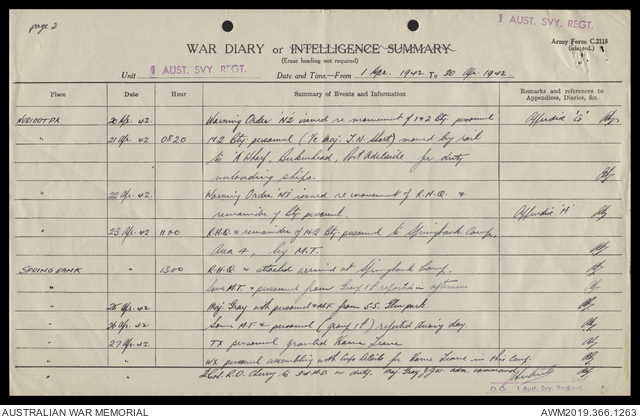 page 2
1 AUST. SVY. REGT.
WAR DIARY or INTELLIGENCE SUMMARY
(Erase heading not required)
Army Form C.2118
(adapted.)
Unit 1 AUST. SVY. REGT. Date and Time—From 1 Apr. 1942 To 30 Apr. 1942.
Place Date Hour Summary of Events and Information Remarks and references to Appendices, Diaries, &c.
NURIOOTPA 20 Apr. 42 Warning Order 'N2' issued re movement of 1&2 Bty personnel Appendix 'G'
21 Apr. 42 0820 1&2 Bty personnel (Maj. Hart) moved by rail
to 'K' Wharf, Birkenhead, Port Adelaide for duty
unloading ships.
" 22 Apr. 42. Warning Order issued re movement of R.H.Q. &
remainder of Bty personnel. Appendix 'H'
" 23 Apr. 42 1100 R.H.Q. & remainder of 1&2 Bty. personnel to Springbank Camp,
Area 4, by M.T.
SPRINGBANK " 1300 R.H.Q. & attached arrived at Springbank Camp.
" Some M.T. & personnel from Group 1 reported in afternoon
" 25 Apr. 42 Maj. Gray with personnel from S.S.
" 26 Apr. 42 Some M.T. & personnel (group 1) reported during day.
" 27 Apr. 42 TX personnel granted Home Leave
" WX personnel assembling with Details for Home Leave in this Camp.
Lt Col R.D. to on duty. Maj. Gray adm. command
O.C. 1 Aust. Svy. Regt.
AUSTRALIAN WAR MEMORIAL
AWM2019.366.1263